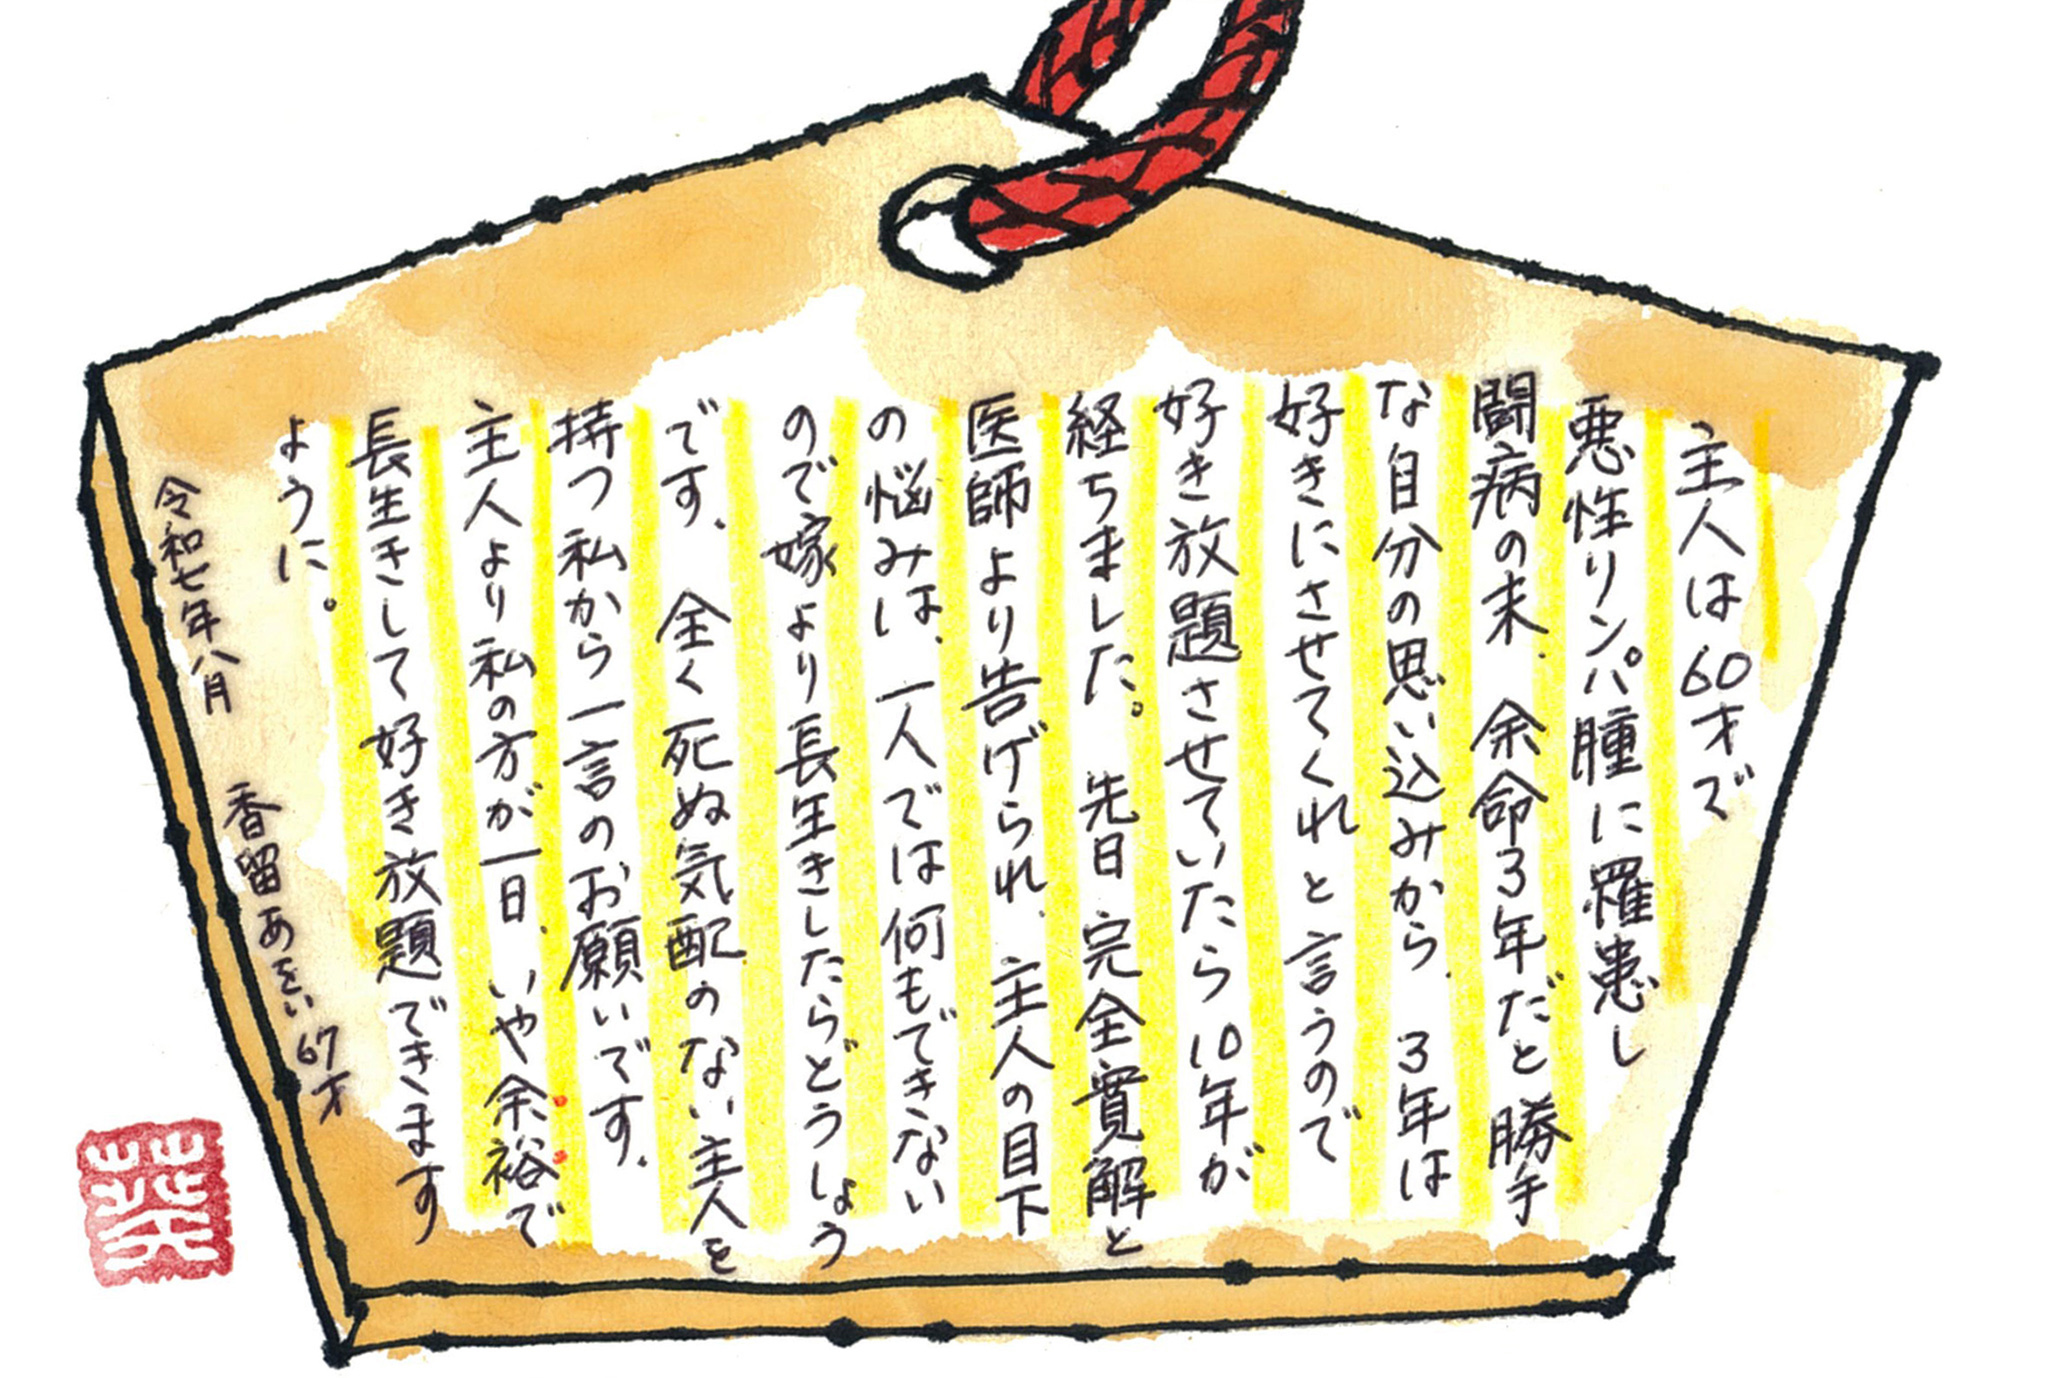 主人は60才で
悪性リンパ腫に羅患し
闘病の末、余命3年だと勝手
な自分の思い込みから、3年は
好きにさせてくれと言うので
好き放題させていたら10年が
経ちました。先日完全寛解と
医師より告げられ、主人の目下
の悩みは、一人では何もできない
ので嫁より長生きしたらどうしょう
です、全く死ぬ気配のない主人を
持つ私から一言のお願いです、
主人より私の方が一日、いや余裕で
長生きして好き放題できます
ように。
令和七年八月 香留あをい67才
葵